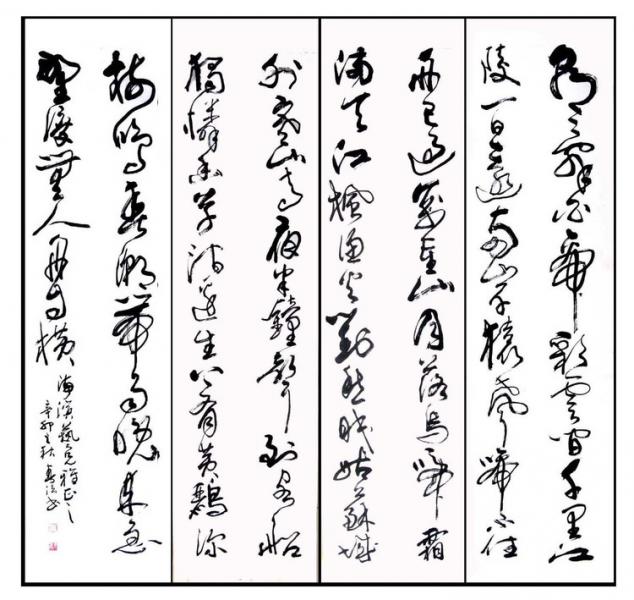 朝辭白帝彩雲間千里江
陵一日還兩岸猿聲啼不住
舟已過萬重山月落烏啼霜
滿天江楓漁火對愁眠姑蘇城
外寒山寺夜半鐘聲到客船
獨憐幽草澗邊生上有黃鸝深
樹鳴春潮帶雨晚來急
野渡無人舟自橫
海濱藝兄雅正之
辛卯之秋